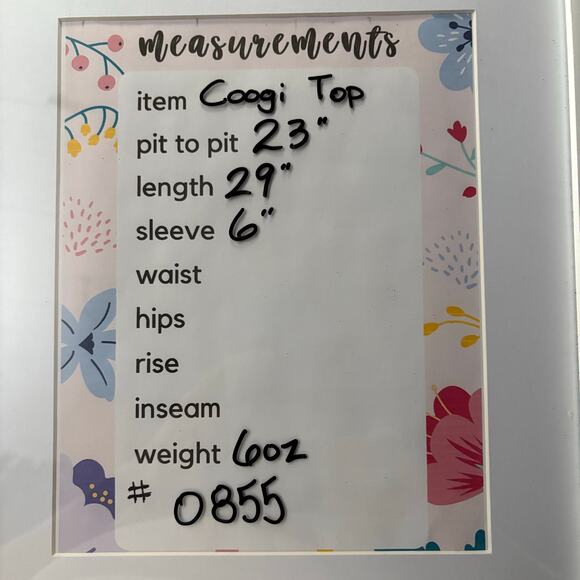 measurements
item Coogi Top
pit to pit 23"
length 29"
sleeve 6"
waist
hips
rise
inseam
weight 6oz
# 0855